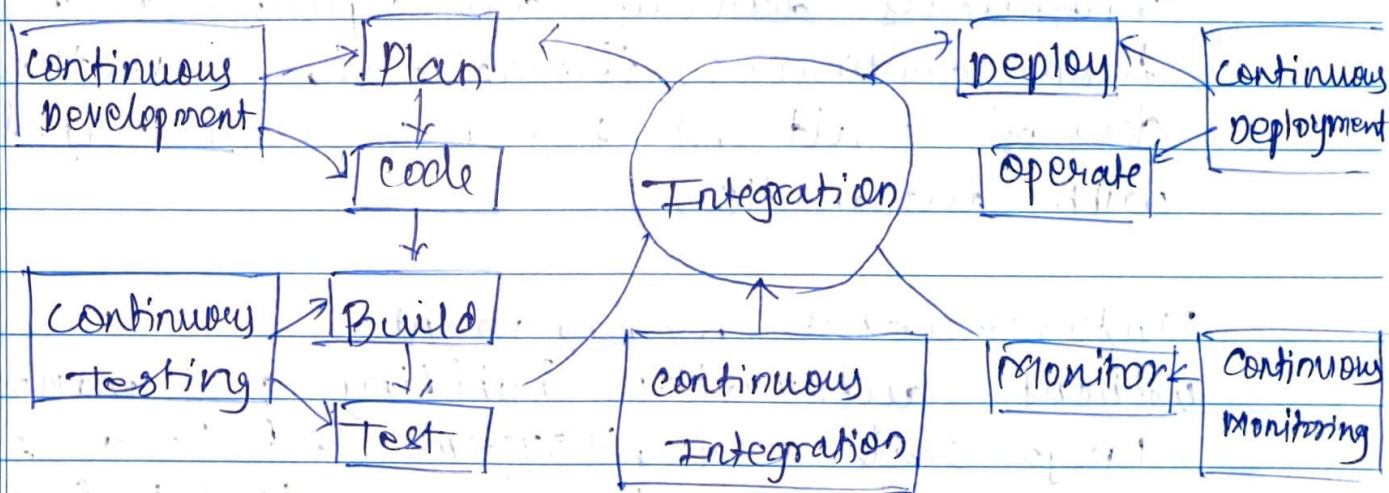 continuous
Development
Plan
code
continuous
Testing
Build
Test
Integration
continuous
Integration
Deploy
operate
continuous
Deployment
Monitor
continuous
Monitoring